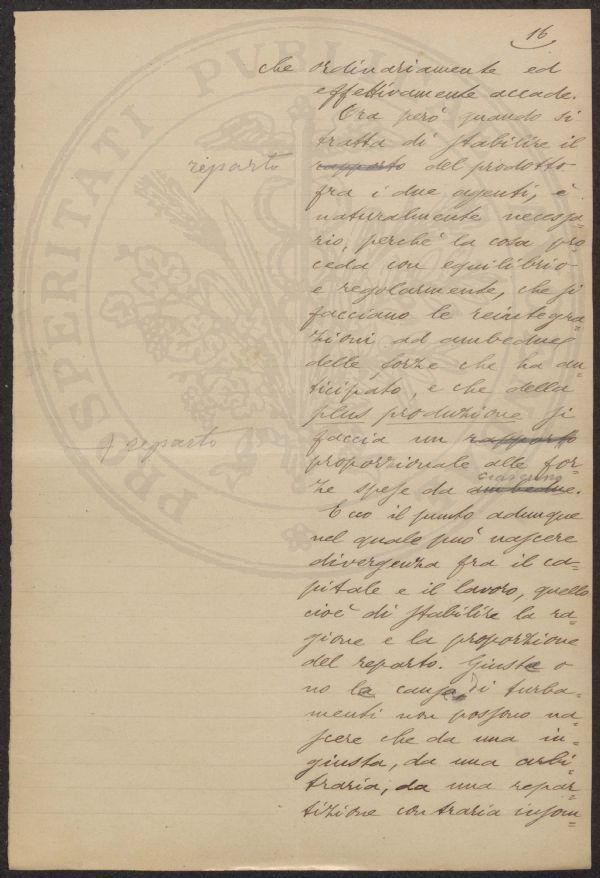 16
che ordinariamente ed
effettivamente accade.
Ora però quando si
tratta di stabilire il
reparto rapporto del prodotto
fra i due agenti, è
naturalmente necessa=
rio, perchè la cosa pro=
ceda con equilibrio
e regolarmente, che si
facciano le reintegra=
zioni ad ambedue
delle forze che ha an=
ticipato, e che della
plus produzione si
reparto faccia un rapporto
proporzionale alle for=
ciascuno
ze spese da ambedue.
Ecco il punto adunque
nel quale può nascere
divergenza fra il ca=
pitale e il lavoro, quello
cioè di stabilire la ra=
gione e la proporzione
del reparto. Giuste o
no le cause di turba=
menti non possono na=
scere che da una in=
giusta, da una arbi=
traria, da una repar=
tizione contraria insom=
PROSPERITATI PUBLIC